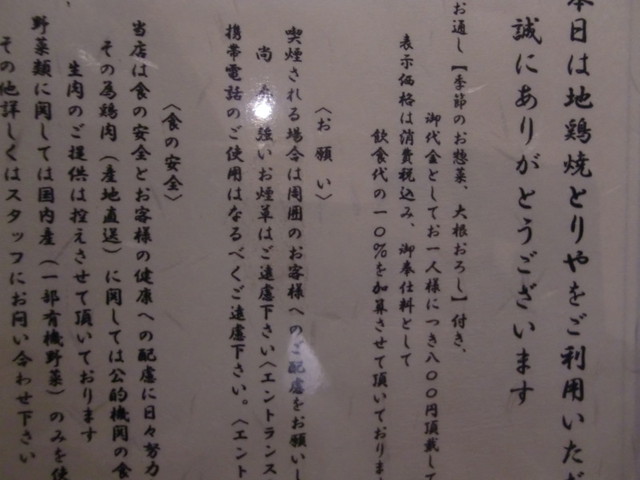 本日は地鶏焼とりやをご利用いただ
誠にありがとうございます
お通し【季節のお惣菜、大根おろし】付き、
御代金としてお一人様につき八〇〇円頂戴して
表示価格は消費税込み、御奉仕料として
飲食代の一〇％を加算させて頂いておりま
〈お願い〉
喫煙される場合は周囲のお客様へのご配慮をお願いし
尚 強いお煙草はご遠慮下さい〈エントランス
携帯電話のご使用はなるべくご遠慮下さい。〈エント
〈食の安全〉
当店は食の安全とお客様の健康への配慮に日々努力
その為鶏肉（産地直送）に関しては公的機関の食
生肉のご提供は控えさせて頂いております
野菜類に関しては国内産（一部有機野菜）のみを使
その他詳しくはスタッフにお問い合わせ下さい